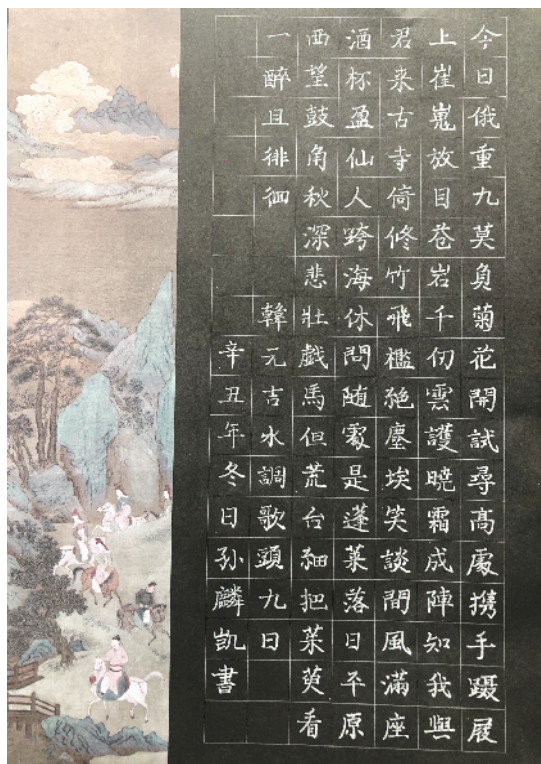 今日俄重九莫負菊花開試尋高處携手蹑展
上崔嵬放目苍岩千仞雲護曉霜成陣知我與
君来古寺倚修竹飛檻絶塵埃笑談間風滿座
酒杯盈仙人跨海休問随處是蓬莱落日平原
西望鼓角秋深悲壮戲馬但荒台細把茱萸看
一醉且徘徊
韓元吉水調歌頭九日
辛丑年冬日孙麟凯書